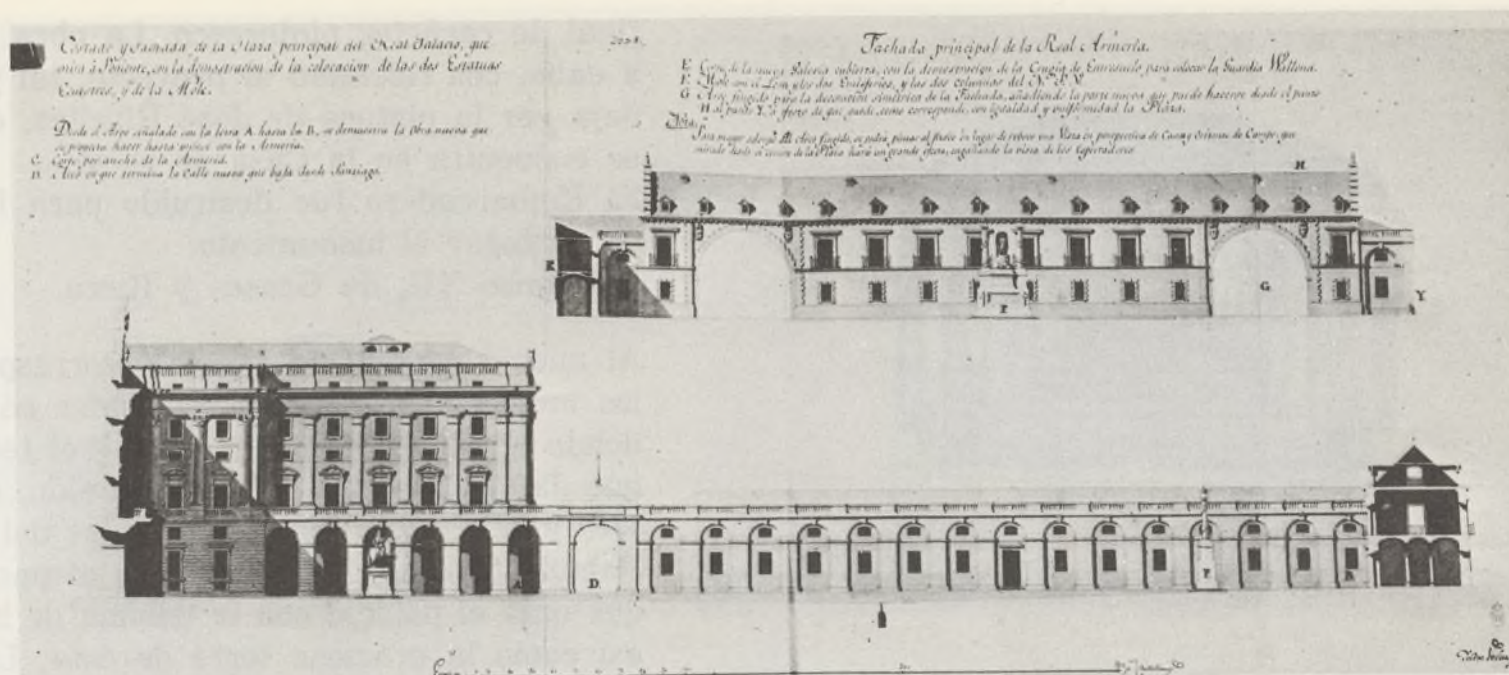 Costado y Fachada de la Plaza principal del Real Palacio, que
mira à Poniente, con la demostracion de la colocacion de las dos Estatuas
Equestres, y de la Mole.
Desde el Arco señalado con la letra A. hasta la B. se demuestra la Obra nueva que
se proyecta hacer hasta con la Armeria.
C. Corte por ancho de la Armeria.
D. Arco en que termina la Calle nueva que baja desde Santiago.
Fachada principal de la Real Armeria.
E. Corte de la nueva Galeria cubierta, con la demostracion de la Crugia de Entresuelo para colocar la Guardia Wallona.
F. Mole con el Leon y los dos Emisferios, y las dos columnas del N. P. V.
G. Arco fingido para la decoracion simetrica de la Fachada, añadiendo la parte nueva que puede hacerse desde el punto
H. al punto Y. a efecto de que quede, como corresponde, con igualdad y uniformidad la Plaza.
Nota.
Para mayor adorno Arco fingido, se podrá pintar al fresco en lugar de una Vista en perspectiva de Casas y de Campo, que
mirado desde el centro de la Plaza hará un grande efecto, engañando la vista de los espectadores.
H.
E.
F.
G.
Y.
A.
D.
F.
B.